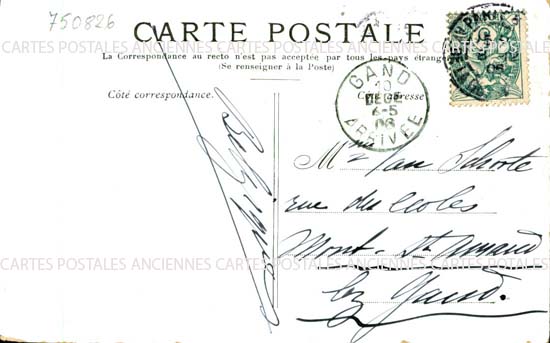 750826
CARTE POSTALE
La Correspondance au recto n'est pas acceptée par tous les pays étrangers
(Se renseigner à la Poste)
Côté correspondance.
Côté adresse
GAND
10
DECE
6-5
06
ARRIVÉE
Belgique
rue des écoles
Mont-St Amand
lez Gand.
CARTES POSTALES ANCIENNES CARTES POSTALES ANCIENNES CARTES POSTALES
CARTES POSTALES ANCIENNES CARTES POSTALES ANCIENNES CARTES POSTALES